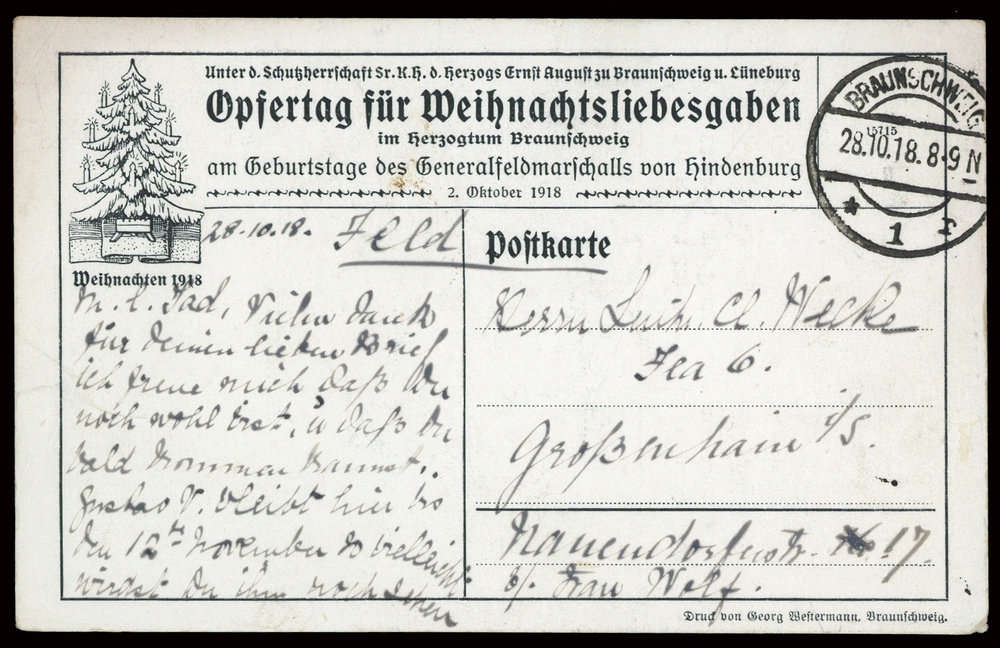 Unter d. Schutzherrschaft Sr. K. H. d. Herzogs Ernst August zu Braunschweig u. Lüneburg
Opfertag für Weihnachtsliebesgaben
im Herzogtum Braunschweig
am Geburtstage des Generalfeldmarschalls von Hindenburg
2. Oktober 1918
BRAUNSCHWEIG
15715
28.10.18. 8-9 N
* 1 r
Weihnachten 1918
28.10.18. Feld
Postkarte
M. l. Vielen Dank
für Deinen lieben Brief
ich freue mich daß du
noch wohl bist, u daß du
bald kommen kannst.
Gustav V. bleibt hier bis
den 12ten November vielleicht
wirst Du ihn noch sehen
Herrn Cl. Wecke
Fea 6.
Großenhain i/S.
Nauendorferstr. 17.
b/. Frau Wolf.
Druck von Georg Westermann, Braunschweig.